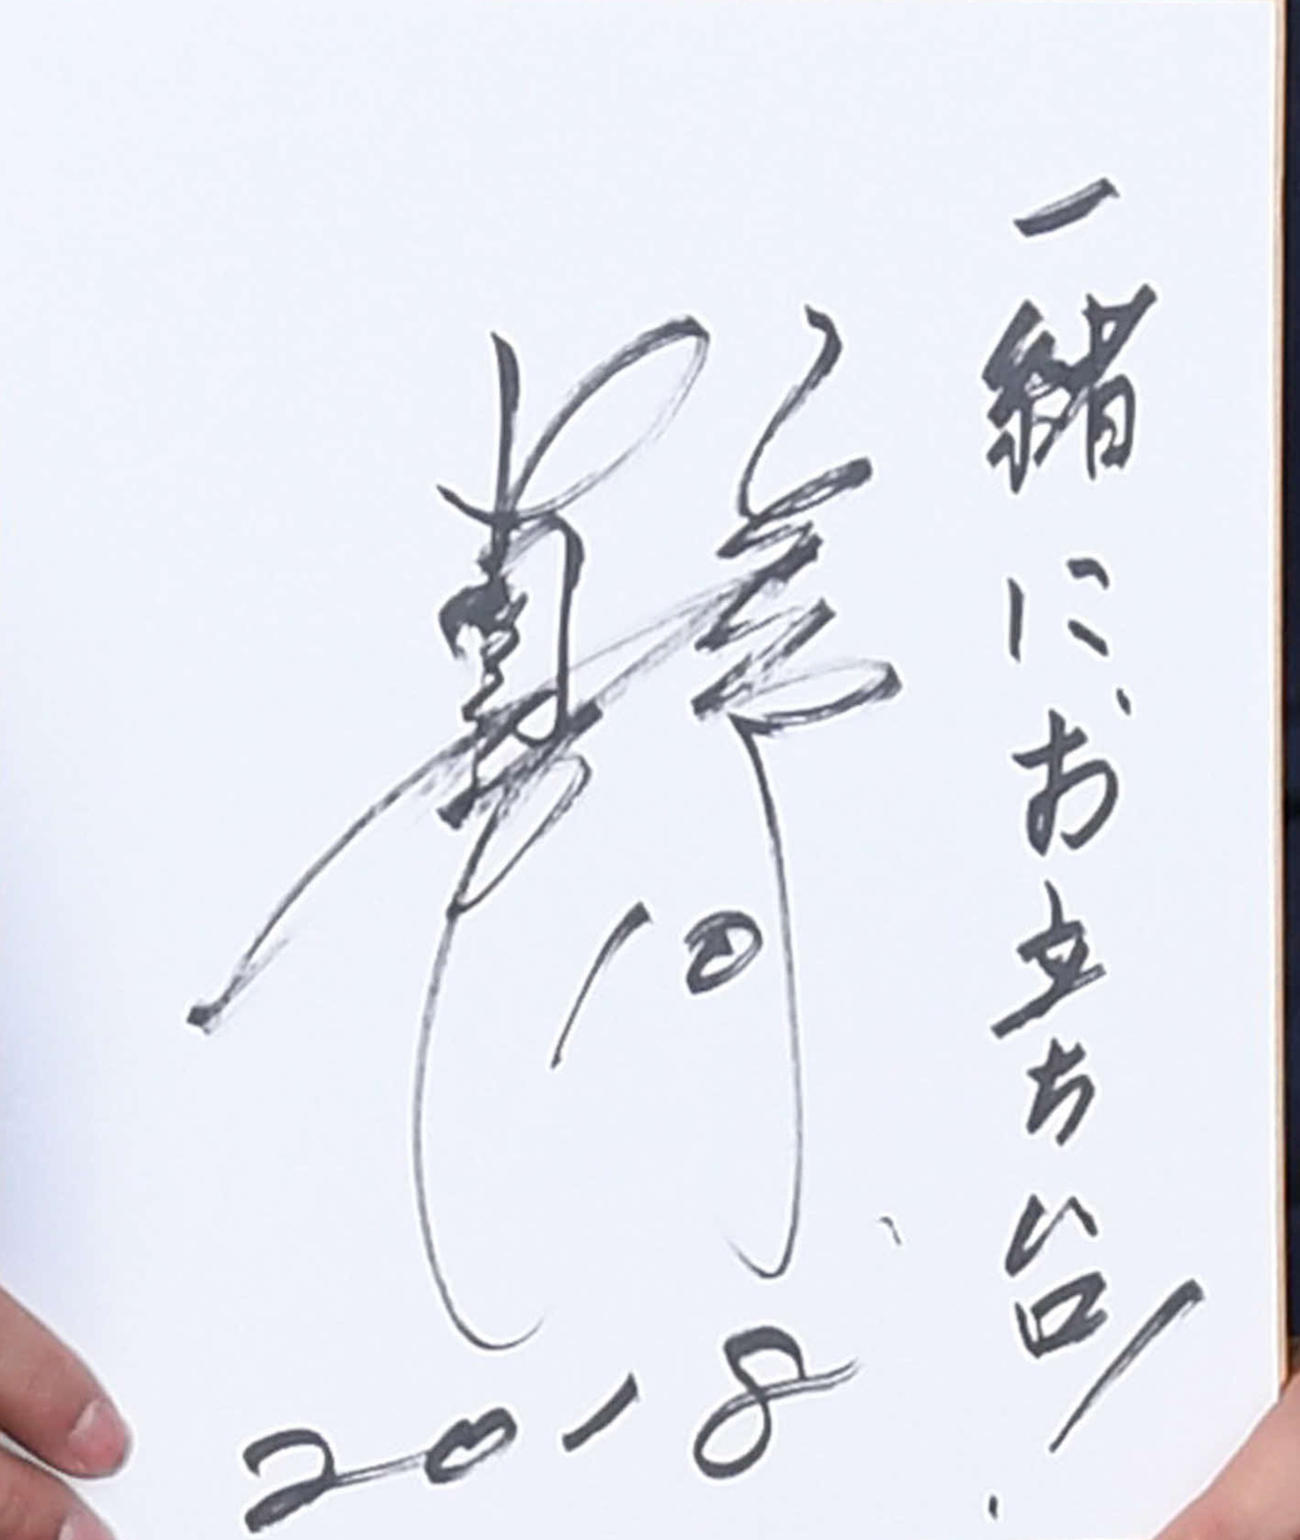 一緒にお立ち台!
10
2018